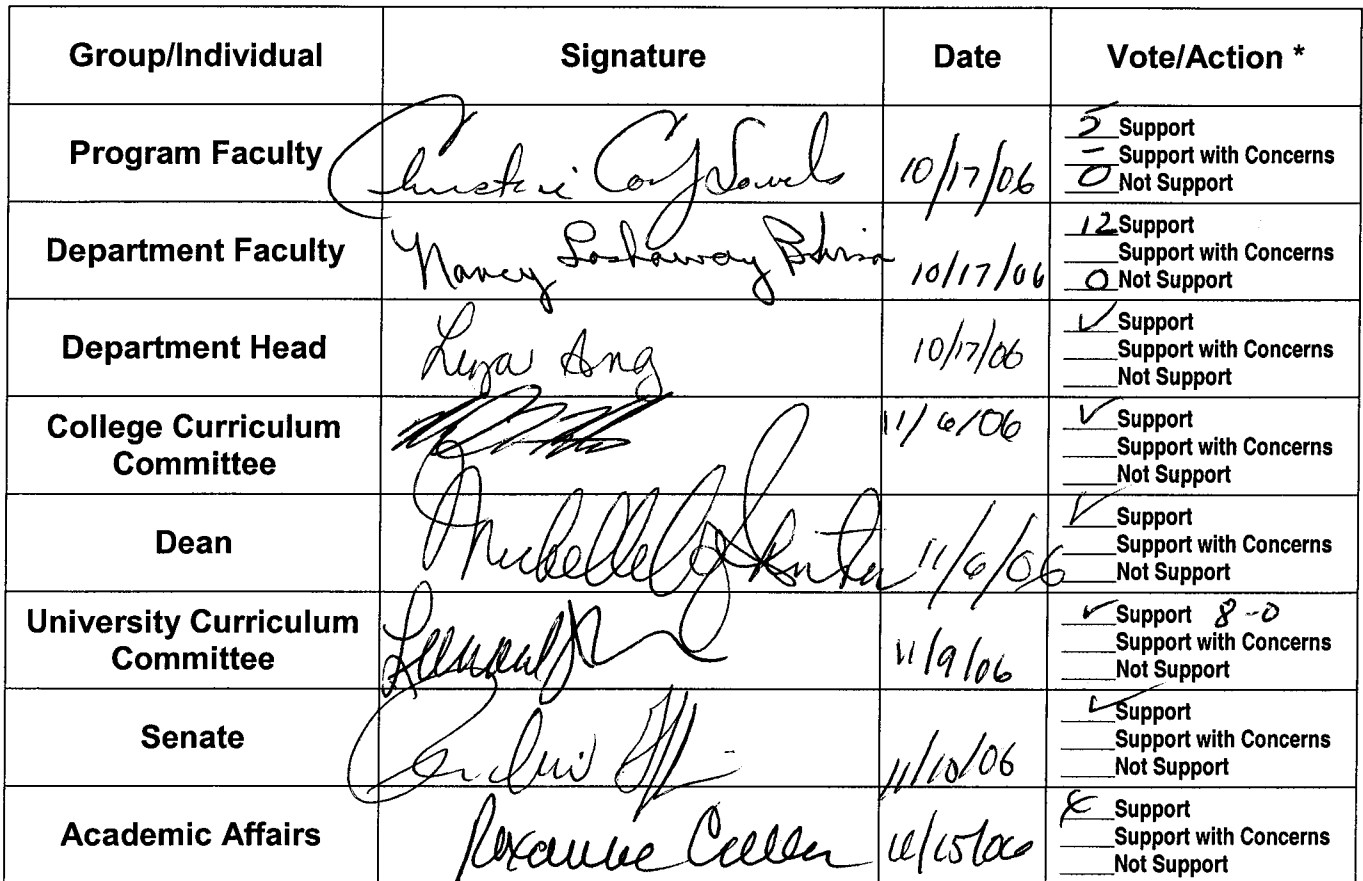 Group/Individual Signature Date Vote/Action *
Program Faculty 10/17/06
5 Support
– Support with Concerns
0 Not Support
Department Faculty Nancy 10/17/06
12 Support
Support with Concerns
0 Not Support
Department Head Ang 10/17/06
✓ Support
Support with Concerns
Not Support
College Curriculum
Committee
11/6/06
✓ Support
Support with Concerns
Not Support
Dean Michelle 11/6/06
✓ Support
Support with Concerns
Not Support
University Curriculum
Committee
11/9/06
✓ Support 8-0
Support with Concerns
Not Support
Senate 11/10/06
✓ Support
Support with Concerns
Not Support
Academic Affairs Roxanne Cullen 11/15/06
Support
Support with Concerns
Not Support